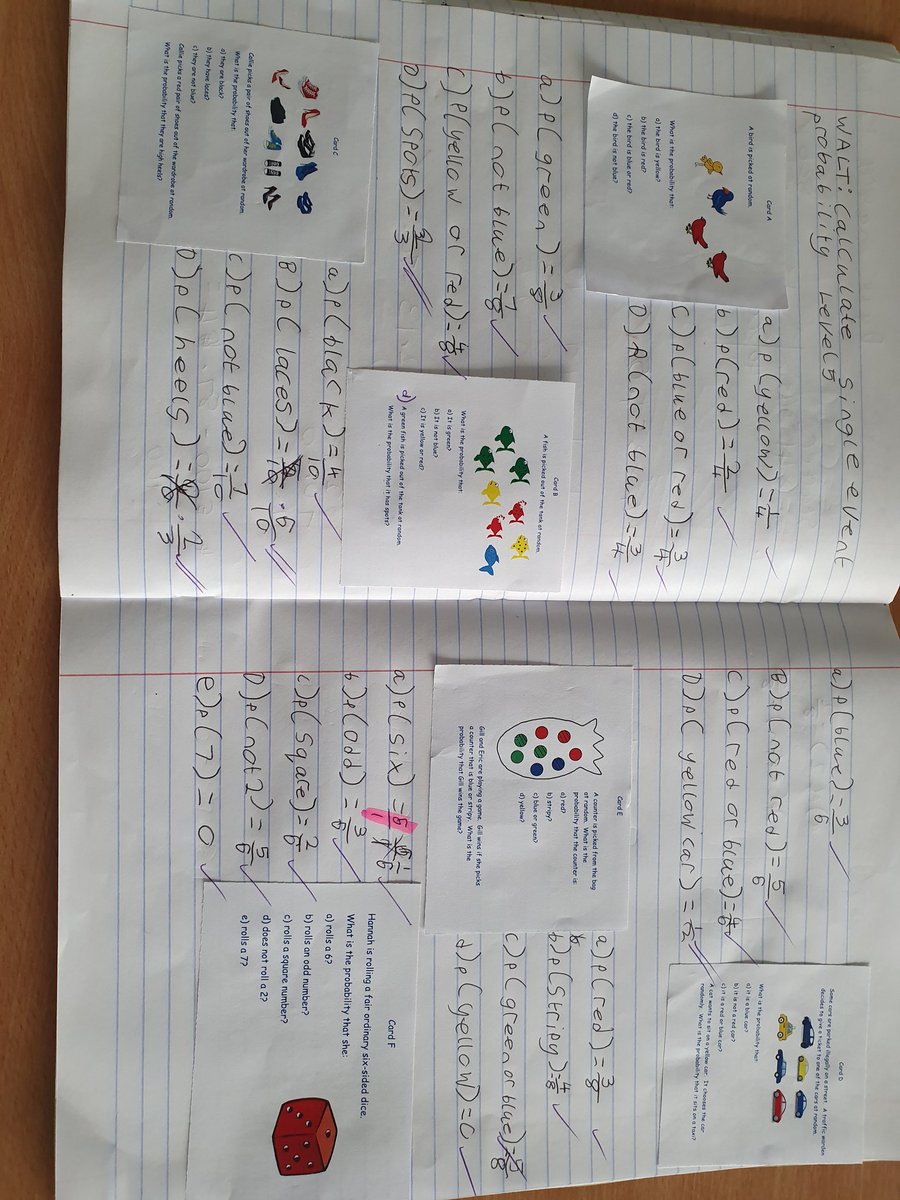 WALT: Calculate single event
probability Level 5
Card A
A bird is picked at random.
What is the probability that:
a) the bird is yellow?
b) the bird is red?
c) the bird is blue or red?
d) the bird is not blue?
a) P(yellow) = 1/4
b) P(red) = 2/4
C) P(blue or red) = 3/4
D) P(not blue) = 3/4
a) P(green) = 3/8
b) P(not blue) = 7/8
C) P(yellow or red) = 4/8
D) P(Spots) = 2/3
Card B
A fish is picked out of the tank at random.
What is the probability that:
a) It is green?
b) It is not blue?
c) It is yellow or red?
d)
A green fish is picked out of the tank at random.
What is the probability that it has spots?
Card C
Callie picks a pair of shoes out of her wardrobe at random.
What is the probability that:
a) they are black?
b) they have laces?
c) they are not blue?
Callie picks a red pair of shoes out of the wardrobe at random.
What is the probability that they are high heels?
a) P(black) = 4/10
B) P(laces) = 6/10
C) P(not blue) = 7/10
D) P(heels) = 2/3
a) P(blue) = 3/6
B) P(not red) = 5/6
C) P(red or blue) = 4/6
D) P(yellow car) = 1/2
Card D
Some cars are parked illegally on a street. A traffic warden
decides to give a ticket to one of the cars at random.
What is the probability that
a) it is a blue car?
b) it is not a red car?
c) it is a red or blue car?
A cat wants to sit on a yellow car. It chooses the car
randomly. What is the probability that it sits on a taxi?
Card E
A counter is picked from the bag
at random. What is the
probability that the counter is:
a) red?
b) stripy?
c) blue or green?
d) yellow?
Gill and Eric are playing a game. Gill wins if she picks
a counter that is blue or stripy. What is the
probability that Gill wins the game?
a) P(red) = 3/8
b) P(Stripy) = 4/8
C) P(green or blue) = 5/8
d) P(yellow) = 0
a) P(six) = 6/1 1/6
b) P(odd) = 3/6
c) P(Sqate) = 2/6
D) P(not 2) = 5/6
e) P(7) = 0
Card F
Hannah is rolling a fair ordinary six-sided dice.
What is the probability that she:
a) rolls a 6?
b) rolls an odd number?
c) rolls a square number?
d) does not roll a 2?
e) rolls a 7?